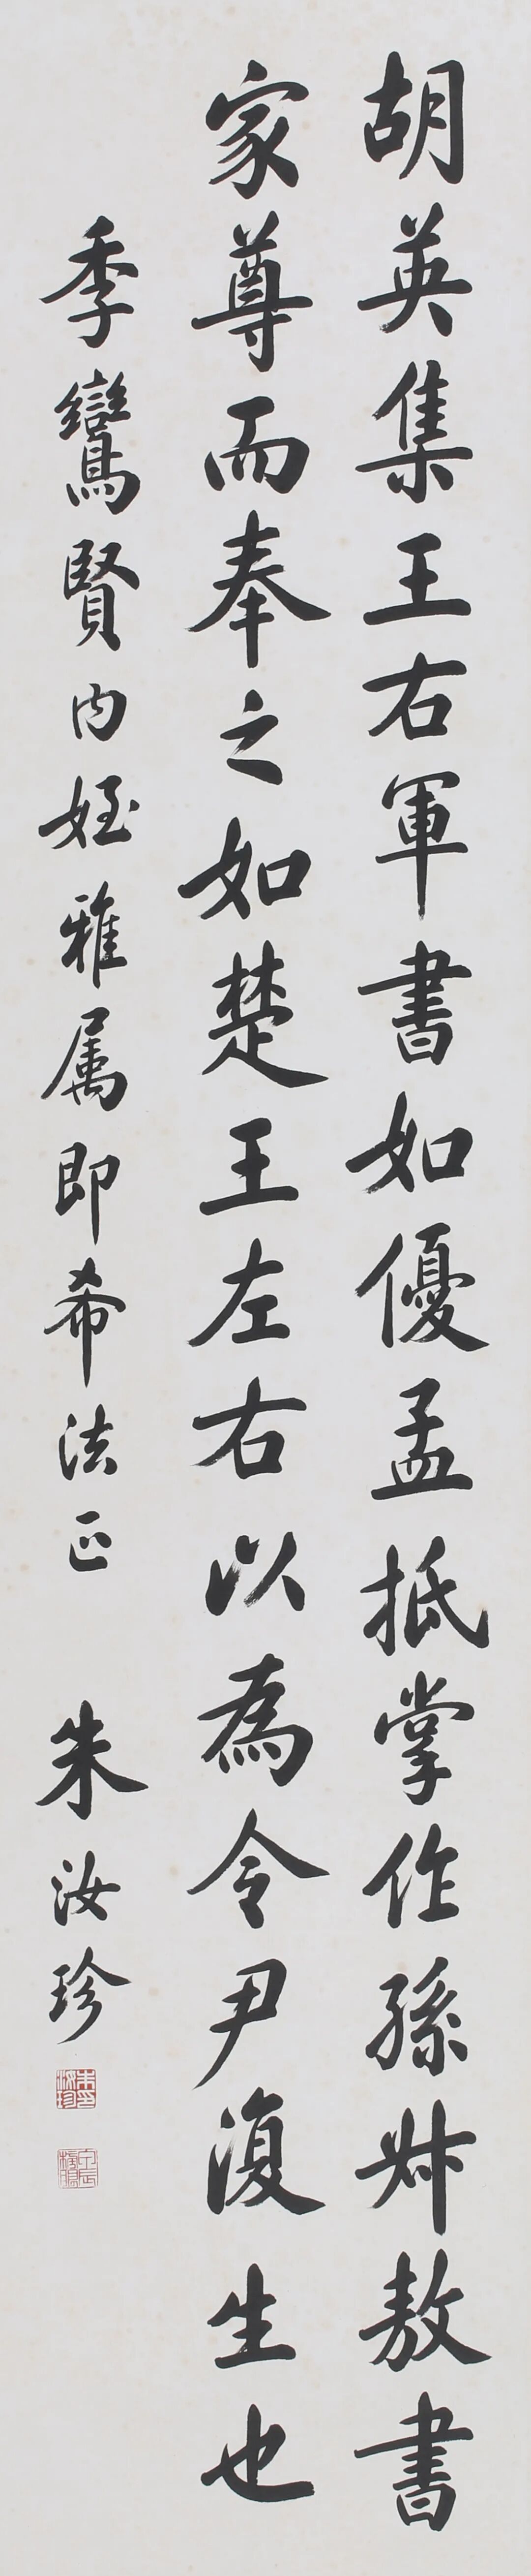 胡英集王右軍書如優孟抵掌作孫叔敖書
家尊而奉之如楚王左右以為令尹復生也
季鸞賢内姪雅属即希法正　朱汝珍
朱汝珍印